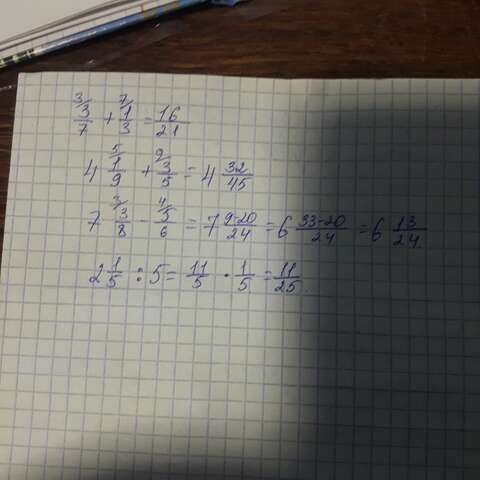 3/ 3/7 + 7/ 1/3 = 16/21
4 5/ 1/9 + 9/ 3/5 = 4 32/45
7 3/ 3/8 - 4/ 5/6 = 7 9-20/24 = 6 33-20/24 = 6 13/24
2 1/5 : 5 = 11/5 · 1/5 = 11/25